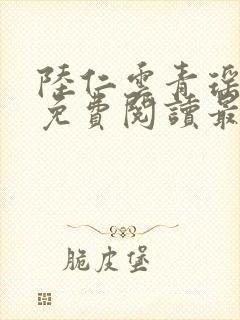 陸仁雲青瑶
免費閱讀最
脆皮堡